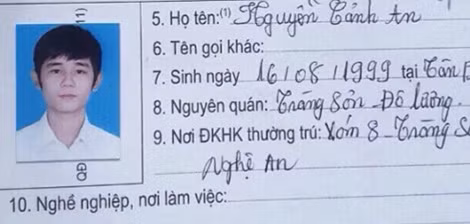 5. Họ tên:(1) Nguyễn Cảnh An
6. Tên gọi khác:
7. Sinh ngày 16/08/1999 tại
8. Nguyên quán: Tràng Sơn - Đô Lương.
9. Nơi ĐKHK thường trú: Xóm 8 - Tràng
Nghệ An
10. Nghề nghiệp, nơi làm việc: